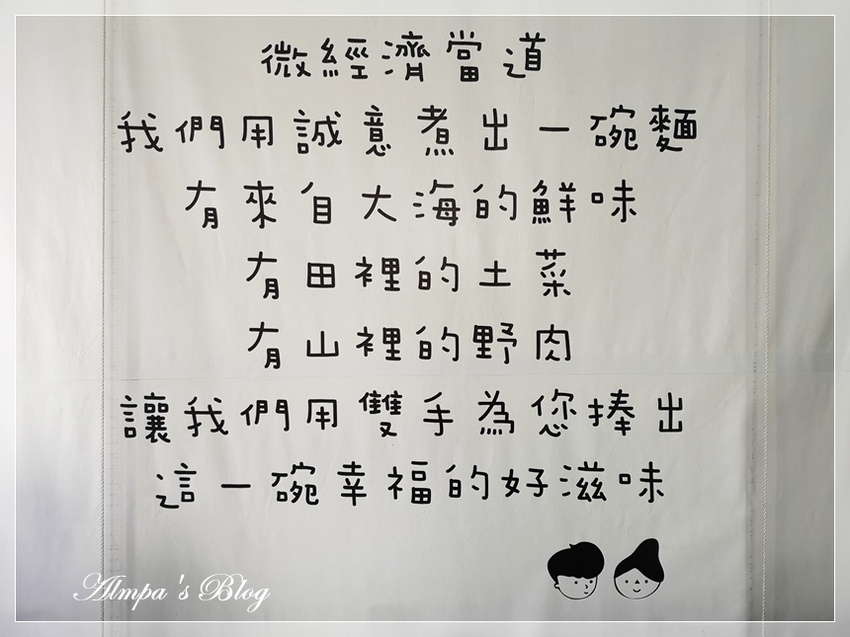 微經濟當道
我們用誠意煮出一碗麵
有來自大海的鮮味
有田裡的土菜
有山裡的野肉
讓我們用雙手為您捧出
這一碗幸福的好滋味
Almpa's Blog